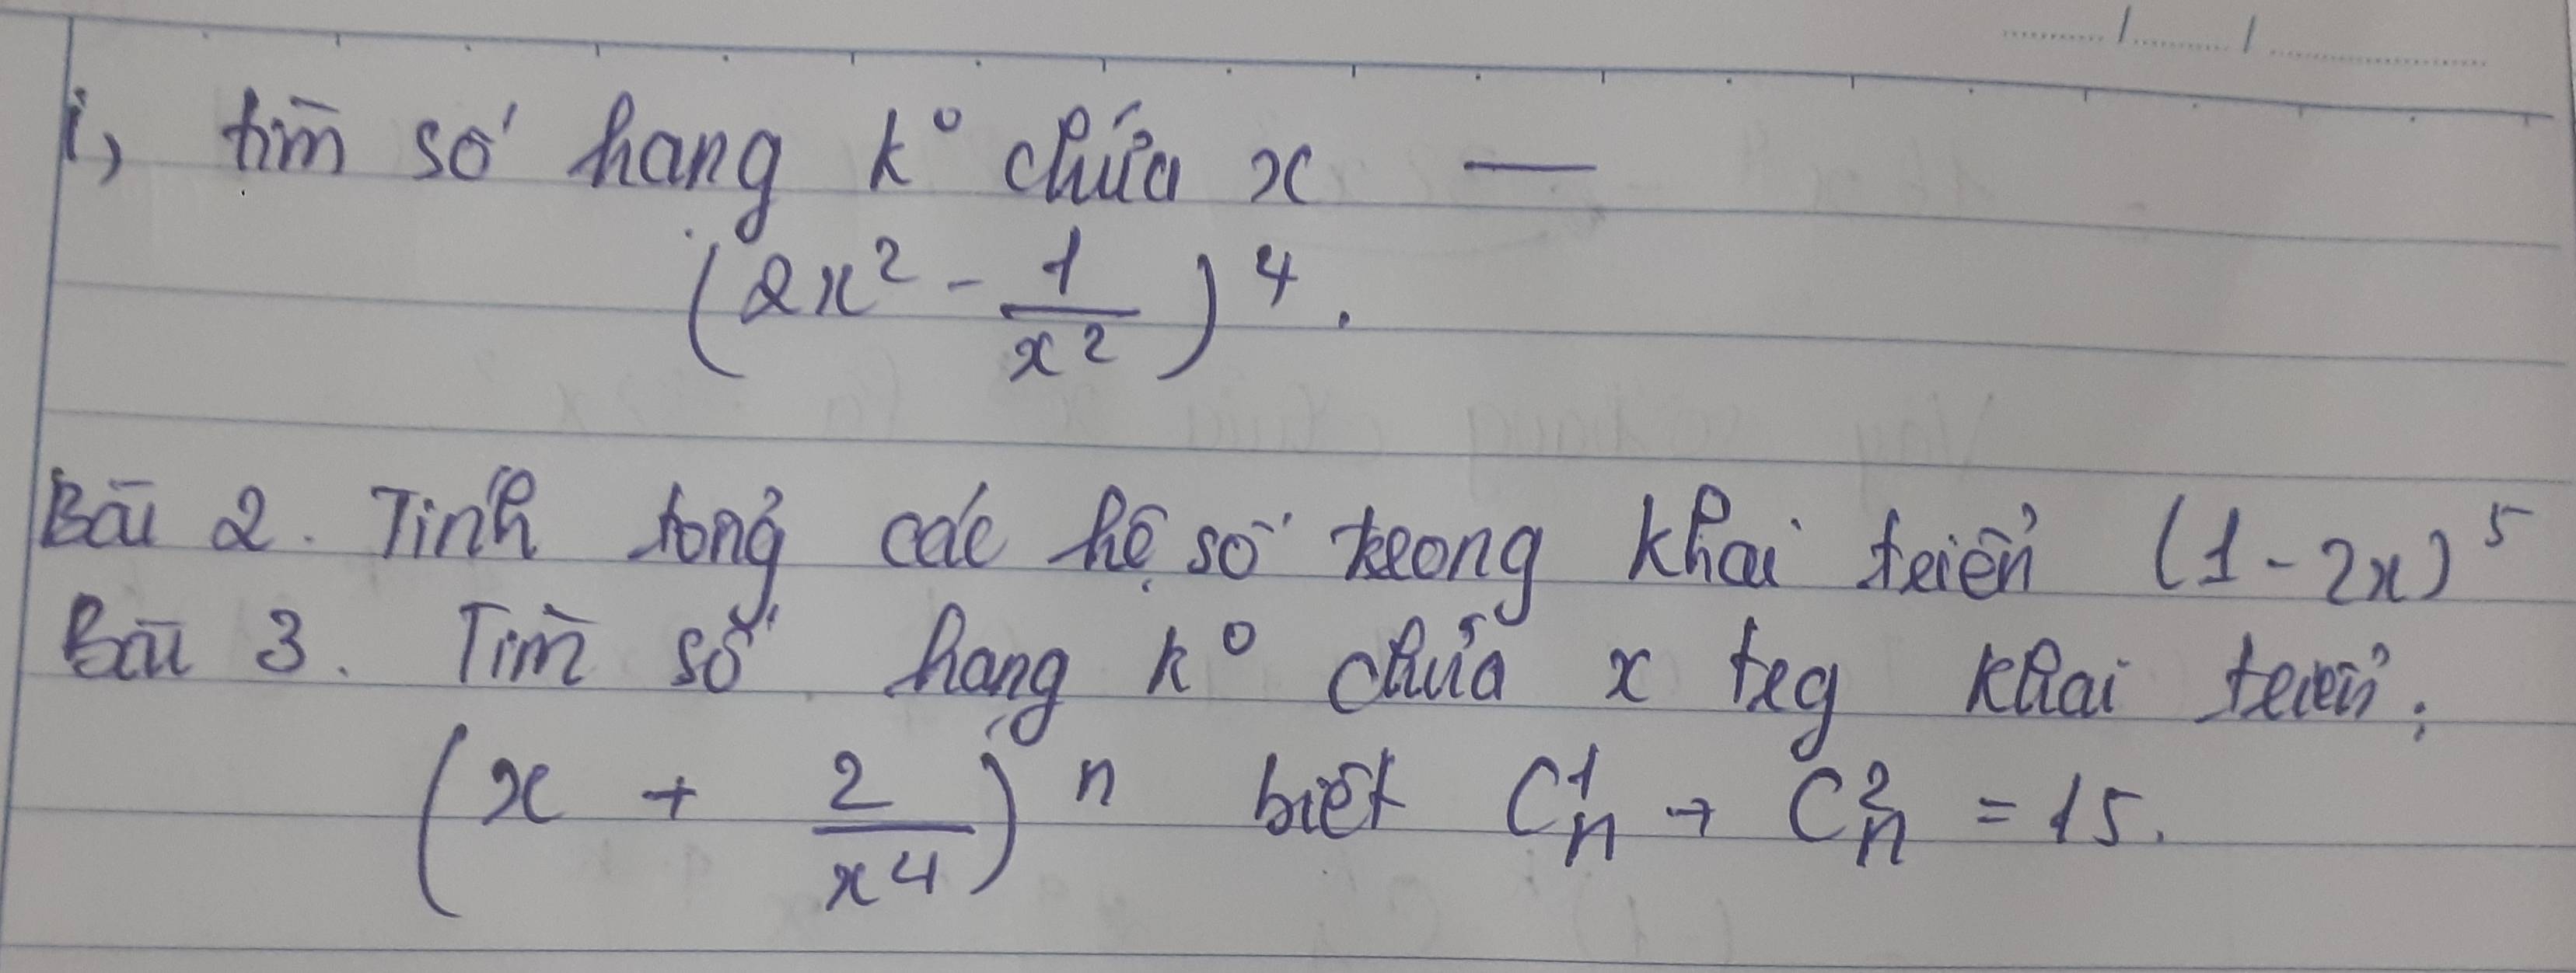 i, tìm số hạng k° chứa x —
(2x² - 1/x²)⁴.
Bài 2. Tính tổng các hệ số trong khai triển (1 - 2x)⁵
Bài 3. Tìm số hạng k° chứa x trg khai triển:
(x + 2/x⁴)ⁿ biết C¹ₙ + C²ₙ = 15.